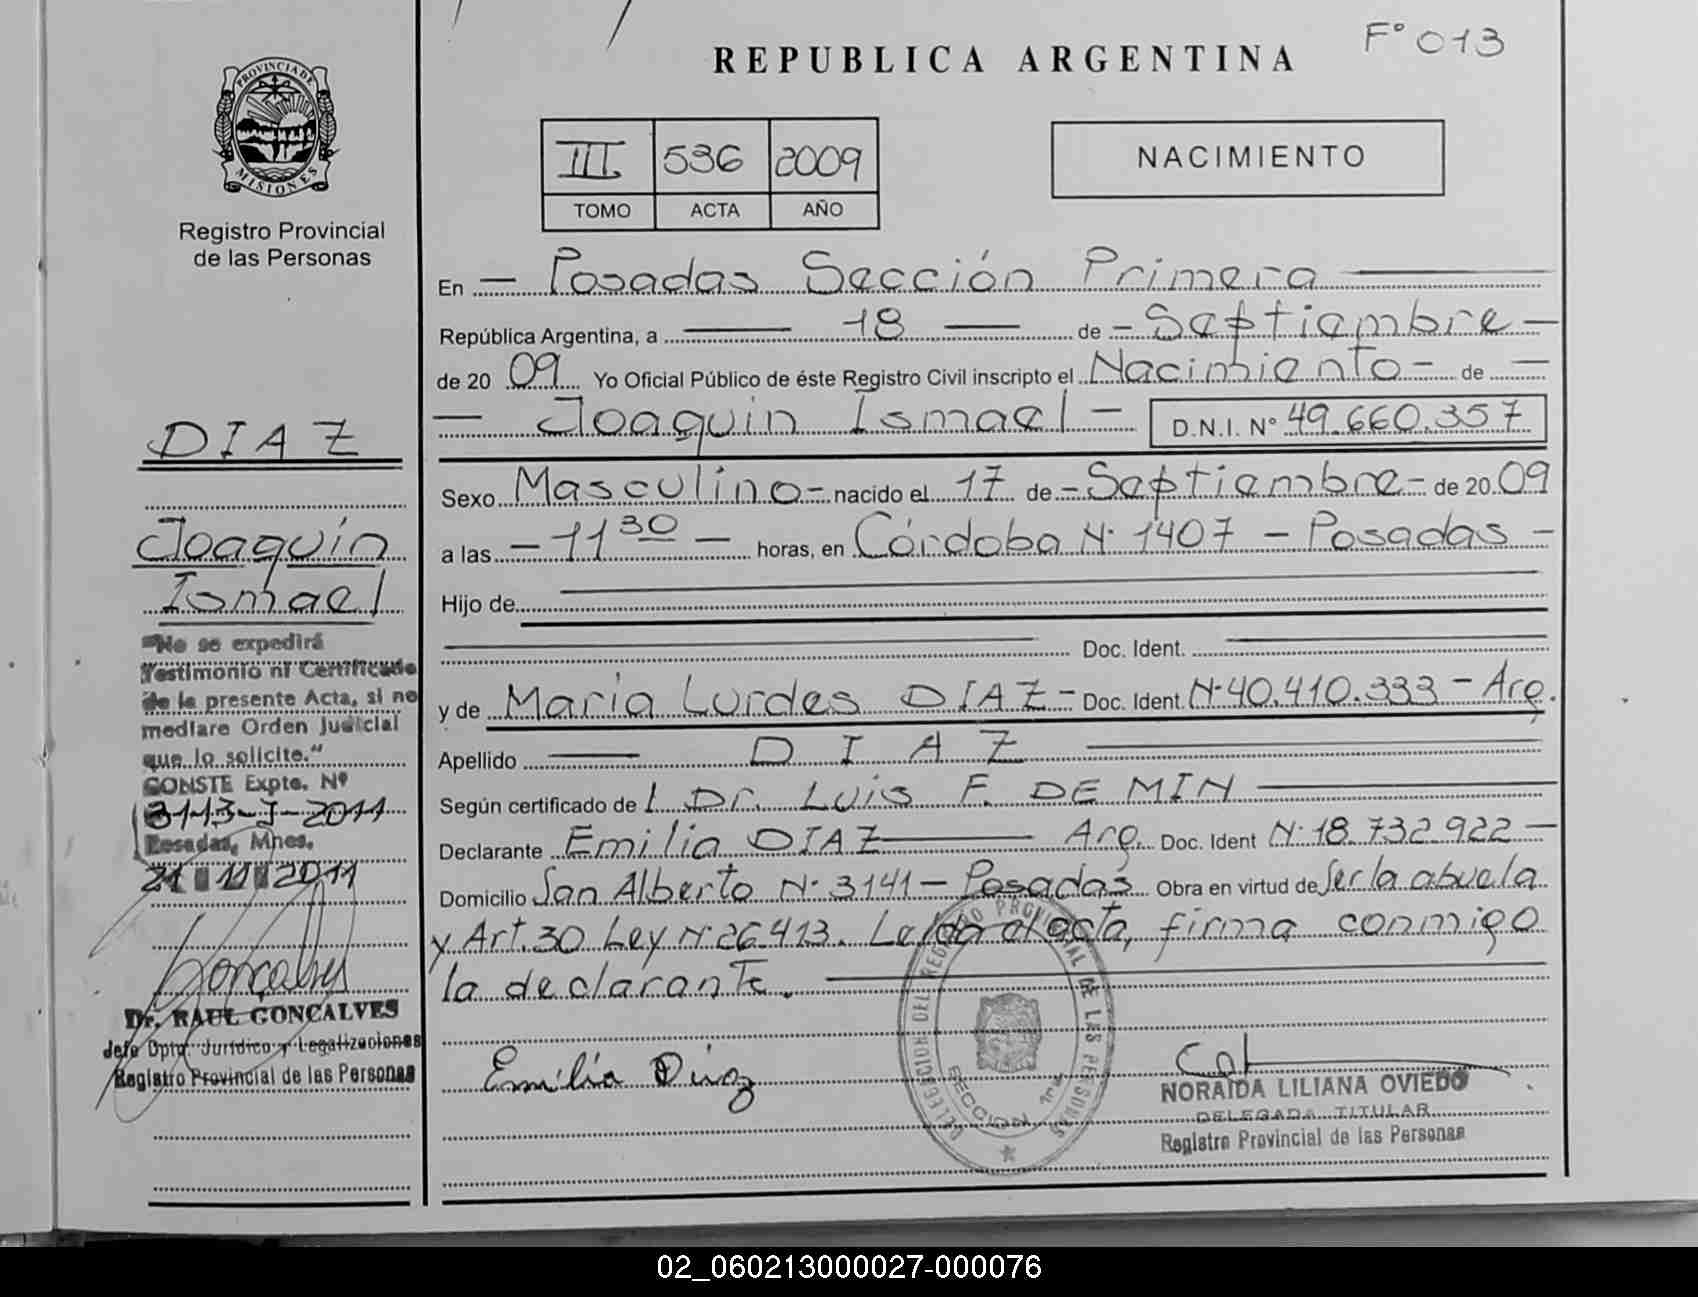 F° 013
REPUBLICA ARGENTINA
PROVINCIA DE
MISIONES
Registro Provincial
de las Personas
III 536 2009
TOMO ACTA AÑO
NACIMIENTO
En Posadas Sección Primera
República Argentina, a 18 de Septiembre
de 2009 Yo Oficial Público de éste Registro Civil inscripto el Nacimiento de
Joaquin Ismael D.N.I. N° 49.660.357
Sexo Masculino nacido el 17 de Septiembre de 2009
a las 11 30 horas, en Córdoba N° 1407 - Posadas
Hijo de
Doc. Ident.
y de Maria Lurdes DIAZ Doc. Ident. N° 40.410.333 - Arg.
Apellido DIAZ
Según certificado de Dr. Luis F. DE MIN
Declarante Emilia DIAZ Arg. Doc. Ident N° 18.732.922
Domicilio San Alberto N° 3141 - Posadas Obra en virtud de Ser la abuela
y Art. 30 Ley N° 26.413. Leída el acta, firma conmigo
la declarante.
Emilia Diaz
DELEGACION DEL REGISTRO PROVINCIAL DE LAS PERSONAS
SECCION 1ra
NORAIDA LILIANA OVIEDO
DELEGADA TITULAR
Registro Provincial de las Personas
DIAZ
Joaquín
Ismael
"No se expedirá
Testimonio ni Certificado
de la presente Acta, si no
mediare Orden Judicial
que lo solicite."
CONSTE Expte. Nº
3113-J-2011
Posadas, Mnes.
21 11 2011
Dr. RAUL GONCALVES
Jefe Dpto. Jurídico y Legalizaciones
Registro Provincial de las Personas
02_060213000027-000076